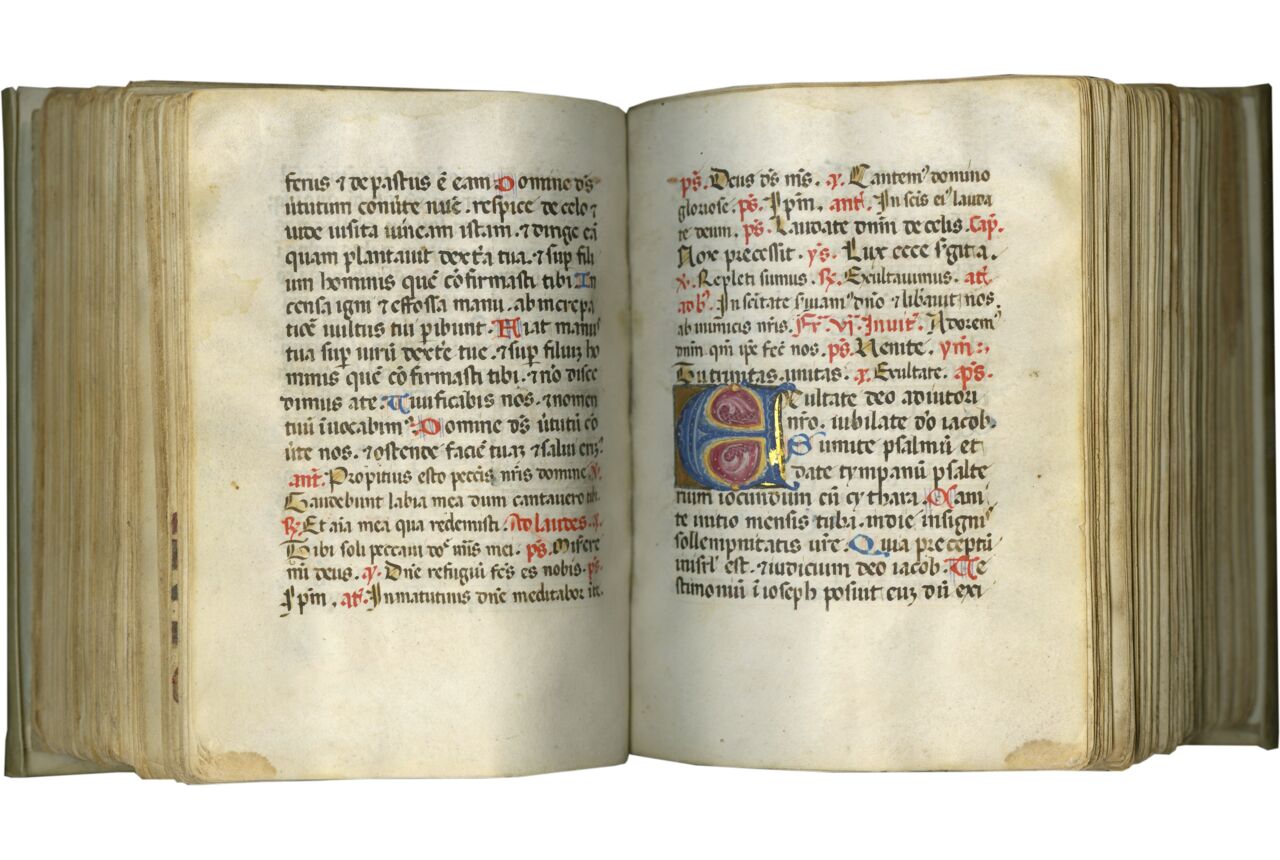 ferus ⁊ depastus ē eam Domine ds̄
ūtutum conūte nūc. respice de celo ⁊
uide uisita uineam istam. ⁊ dirige eā
quam plantauit dextera tua. ⁊ sup̄ fili
um hominis quē cōfirmasti tibi In
censa igni ⁊ effossa manu. ab increpa
ticē uultus tui ꝑibunt. Fiat manus
tua sup̄ uirū dextere tue. ⁊ sup̄ filiuꝫ ho
minis quē cōfirmasti tibi. ⁊ nō disce
dimus ate. Viuificabis nos. ⁊ nomen
tuū īuocabimꝰ. Domine ds̄ ūtutū cō
ūte nos. ⁊ ostende faciē tuaꝫ ⁊ salui erimꝰ.
ant̄. Propitius esto peccīs nr̄is domine ℣.
Gaudebunt labia mea dum cantauero tibi.
℟. Et aīa mea qua redemisti. Ad laudes. a.
Tibi soli peccaui dn̄e miīs mei. ps̄. Misere
mī deus. a. Dn̄e refugiū fc̄s es nobis. ps̄.
Ipm̄. an̄. In matutinis dn̄e meditabor īte.
ps̄. Deus ds̄ ms̄. a. Cantemꝰ domino
gloriose. ps̄. Ipm̄. ant̄. In scīs eiꝰ lauda
te deum. ps̄. Laudate dnm̄ de celis. Cap̄.
Nox precessit. ys̄. Lux ecce sꝰgit a.
℣. Repleti sumus. ℟. Exultauimus. an̄t
ad b̄. In scītate sꝰuiamꝰ dn̄o ⁊ libauit nos
ab inimicis nr̄is. Fr̄. vj. Inuit̄. Adoremꝰ
dnm̄ qm̄ ip̄e fec̄ nos. ps̄. Venite. ym̄.
Tu trinitas unitas. a. Exultate. ps̄.
Exultate deo adiutori
nr̄o. iubilate dō iacob.
Sumite psalmū et
date tympanū psalte
rium iocundum cū cythara. Cani
te initio mensis tuba. indie insigni
sollempnitatis ur̄e. Quia preceptū
inisrl̄ est. ⁊ iudicium deo iacob. Te
stimoniū ī ioseph posuit euꝫ dū exi